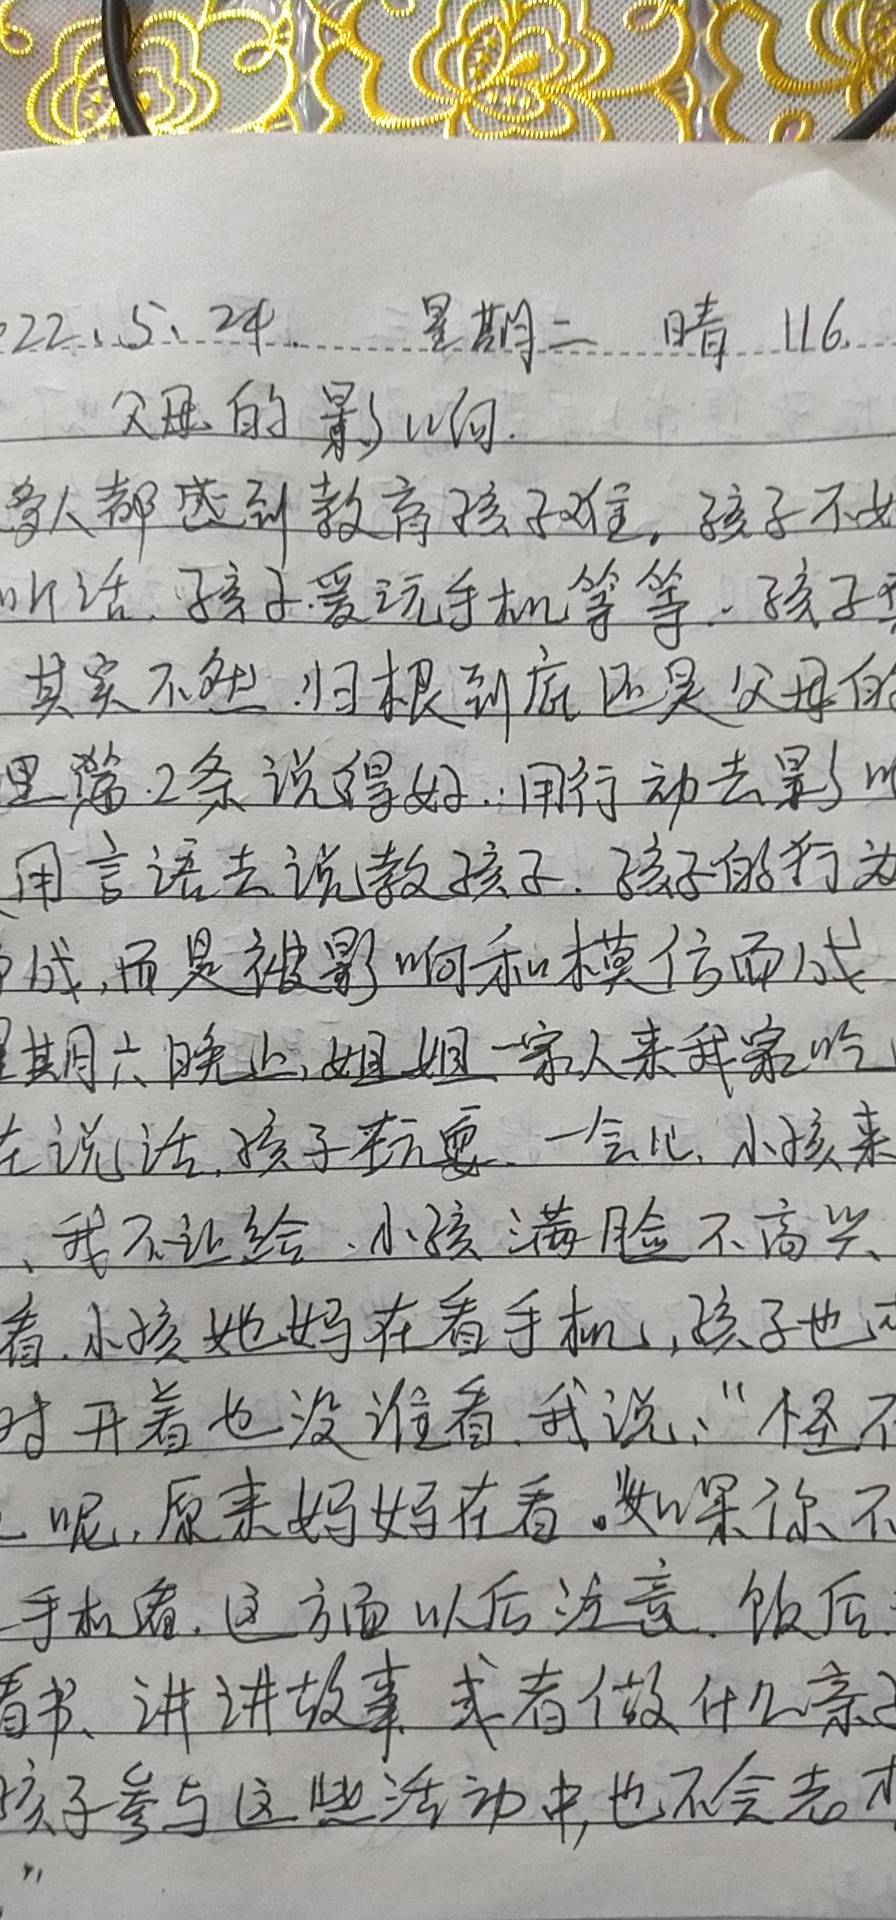 22、5、24. 星期二 晴 116.
父母的影响.
多人都感到教育孩子难。孩子不好
听话.孩子爱玩手机等等..孩子
其实不然.归根到底还是父母的
里第2条说得好:用行动去影响
用言语去说教孩子.孩子的行为
成,而是被影响和模仿而成
星期六晚上,姐姐一家人来我家吃
在说话,孩子玩耍.一会儿.小孩来
、我不让给.小孩满脸不高兴、
看.小孩她妈在看手机,孩子也
时开着也没谁看.我说、“怪不
呢,原来妈妈在看。如果你不
手机看.这方面以后注意.饭后
看书、讲讲故事.或者做什么亲
孩子参与这些活动中,也不会去
”